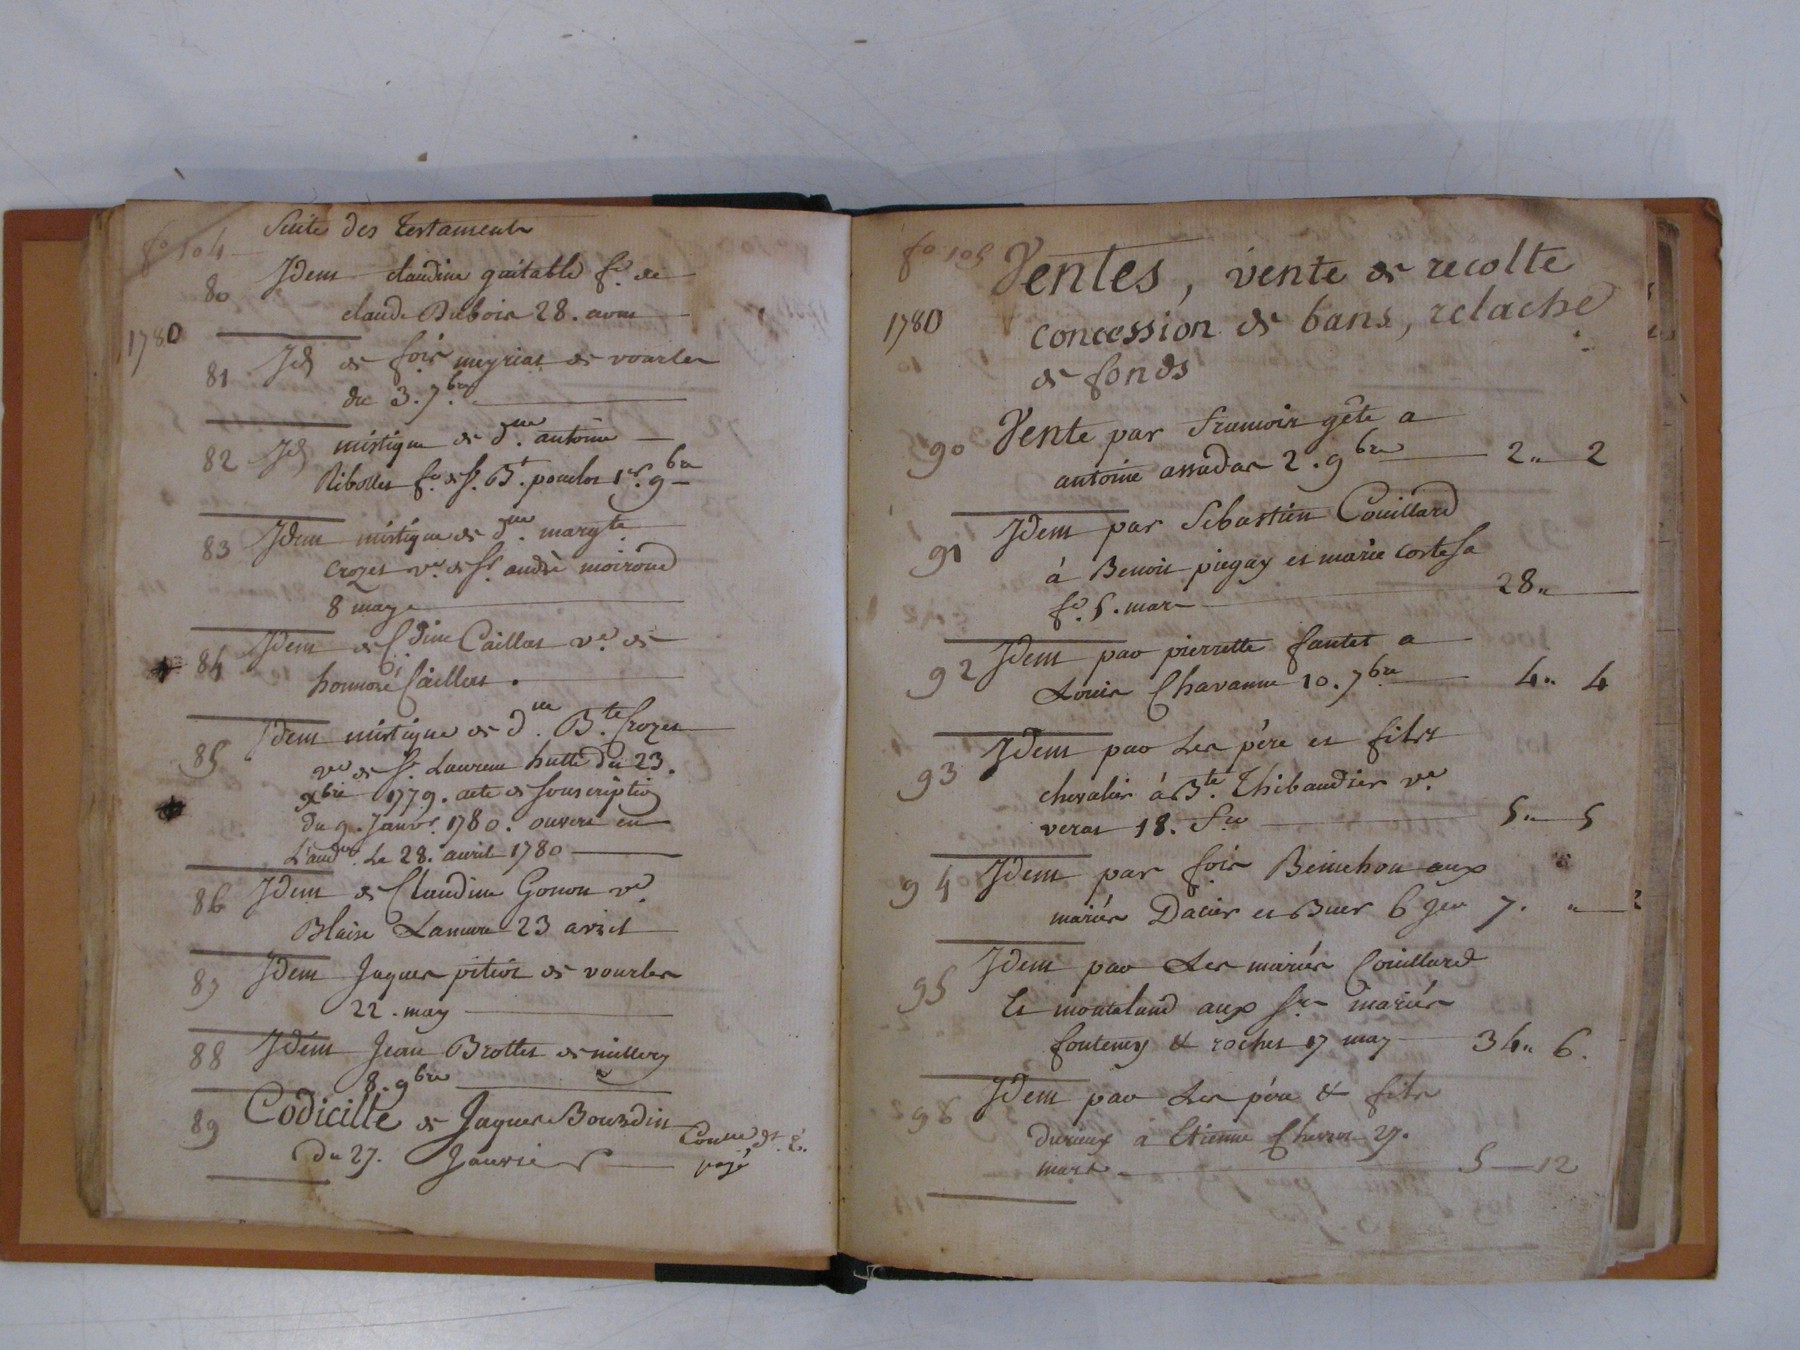 fo 104
Suite des testaments
80 Idem claudine guitable fe. de
claude Dubois 28. avril
1780
81 Id de fois meyriat de vourles
du 3. 7bre
82 Id mistique de dlle. antoine
Ribollet fe. de sr. Bt. 1er. 9bre
83 Idem mistique de dme. margte.
crozet ve. de Sr. andrè moiroud
8 may
84 Idem de Cdine Caillat ve. de
honnoré Caillat.
85 Idem mistique de dme. Bte. Crozet
ve de Sr. Laurent hutte du 23.
9bre 1779. acte de souscription
du 9. Janvr. 1780. ouvert en
L'audce. Le 28. avril 1780
86 Idem de Claudine Gonon ve.
Blaise Lamure 23 avril
87 Idem Jaques pitiot de vourles
22. may
88 Idem Jean Brottet de millery
8. 9bre
89 Codicille de Jaques Bourdin
du 27. Janvier
payé
fo 105
Ventes, vente de recolte
1780
concession de bans, relache
de fonds
90 Vente par francois gête a
antoine assadas 2. 9bre 2" 2
91 Idem par Sebastien Couillard
à Benoit piegay et marie
fe. 5. mars 28"
92 Idem par pierrette fautet a
Louis Chavanne 10. 7bre 4" 4
93 Idem par Les père et fils
chevalier à Bte. Thibaudier ve.
verat 18. 5" 5
94 Idem par fois Benichon aux
mariés Dacier et 6 Jer 7. "
95 Idem par Les mariés Couillard
et montaland aux Srs mariés
fonteney & rochet 17 may 34" 6.
96 Idem par Les père & fils
durieux a Etienne 27.
mars 5 12